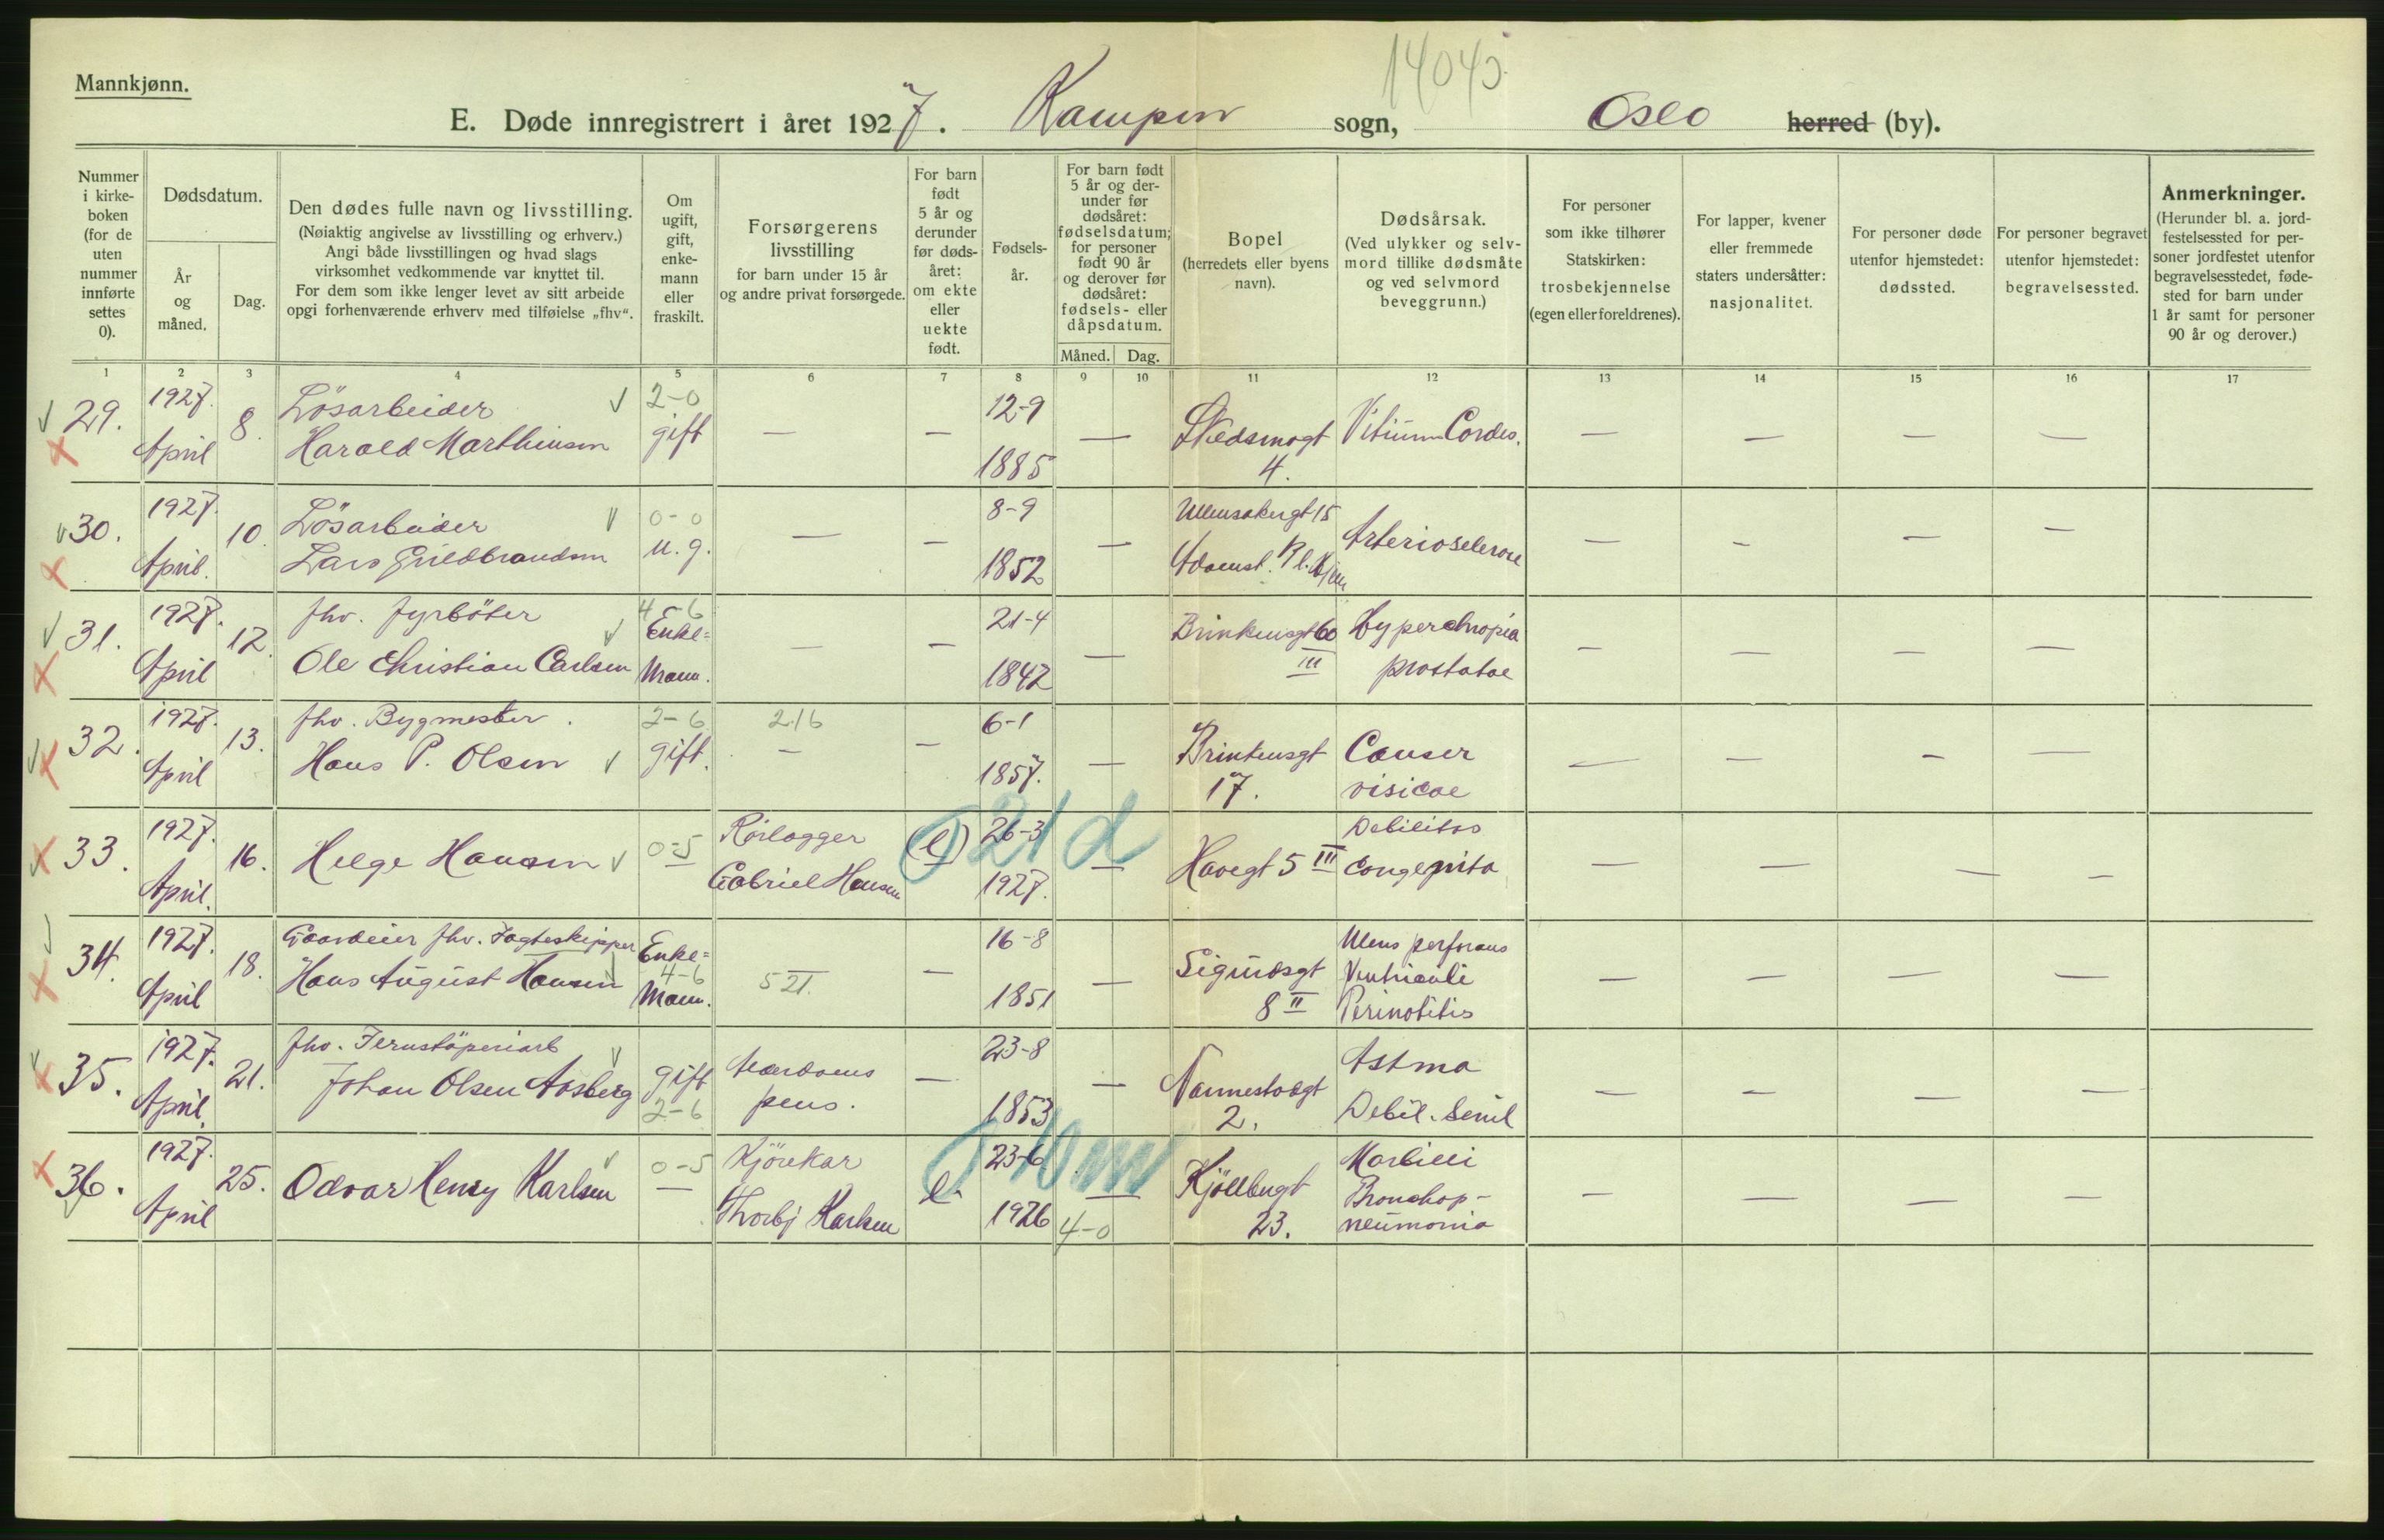 14045.
Mannkjønn.
E. Døde innregistrert i året 1927. Kampen sogn, Oslo herred (by).
Nummer i kirke- boken (for de uten nummer innførte settes 0).
Dødsdatum.
År og måned.
Dag.
Den dødes fulle navn og livsstilling.
(Nøiaktig angivelse av livsstilling og erhverv.)
Angi både livsstillingen og hvad slags
virksomhet vedkommende var knyttet til.
For dem som ikke lenger levet av sitt arbeide
opgi forhenværende erhverv med tilføielse „fhv“.
Om ugift, gift, enke- mann eller fraskilt.
Forsørgerens livsstilling
for barn under 15 år
og andre privat forsørgede.
For barn født 5 år og derunder før døds- året: om ekte eller uekte født.
Fødsels- år.
For barn født 5 år og der- under før dødsåret: fødselsdatum; for personer født 90 år og derover før dødsåret: fødsels- eller dåpsdatum.
Måned. Dag.
Bopel
(herredets eller byens navn).
Dødsårsak.
(Ved ulykker og selv- mord tillike dødsmåte og ved selvmord beveggrunn.)
For personer som ikke tilhører Statskirken: trosbekjennelse (egen eller foreldrenes).
For lapper, kvener eller fremmede staters undersåtter: nasjonalitet.
For personer døde utenfor hjemstedet: dødssted.
For personer begravet utenfor hjemstedet: begravelsessted.
Anmerkninger.
(Herunder bl. a. jord- festelsessted for per- soner jordfestet utenfor begravelsesstedet, føde- sted for barn under 1 år samt for personer 90 år og derover.)
1 2 3 4 5 6 7 8 9 10 11 12 13 14 15 16 17
29. 1927. April 8. Lösarbeider Harald Marthinsen 2-0 gift — — 12-9 1885 — Skedsmogt 4. Vitium Cordis. — — — —
30. 1927. April. 10. Lösarbeider Lars Guldbrandsen 0-0 u. g. — — 8-9 1852 — Ullensakergt 15 Adamst. Pl. hjem Arteriosclerose — — — —
31. 1927. April 12. fhv. fyrböter Ole Christian Carlsen 4-6 Enke= Mann. — — 21-4 1842 — Brinkensgt 60 III Hyperthropia prostatae — — — —
32. 1927. April 13. fhv. Bygmester. Hans P. Olsen 2-6 gift. 216 — — 6-1 1857. — Brinkensgt 17. Cancer visicae — — — —
33. 1927. April. 16. Helge Hansen 0-5 — Rörlægger Gabriel Hansen e 26-3 1927. 21 d — Havegt 5 III Debilitas congenita — — — —
34. 1927. April 18. Gaardeier fhv. Jagteskipper Hans August Hansen Enke= 4-6 Mann. 521. — 16-8 1851 — Sigurdsgt 8 II Ulcus perforans Ventriculi Perinotitis — — — —
35. 1927. April. 21. fhv. Jernstöperiarb Johan Olsen Aasberg gift 2-6 Alderdoms pens. — 23-8 1853 — Nannestadgt 2. Astma Debil. Senil — — — —
36. 1927. April 25. Odvar Henry Karlsen 0-5 — Kjörekar Thorbj Karlsen e. 23-6 1926 10 m — 4-0 Kjölbergt 23. Morbilli Bronchop- neumonia — — — —